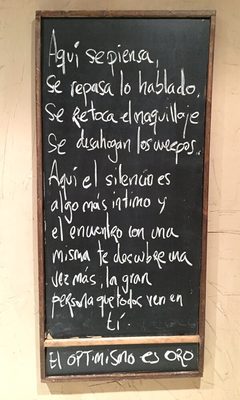 Aquí se piensa,
Se repasa lo hablado,
Se Retoca el maquillaje
Se desahogan los cuerpos.
Aquí el silencio es
algo más intimo y
el encuentro con una
misma te descubre una
vez más, la gran
persona que todos ven en
tí.
El OPTIMISMO es ORO